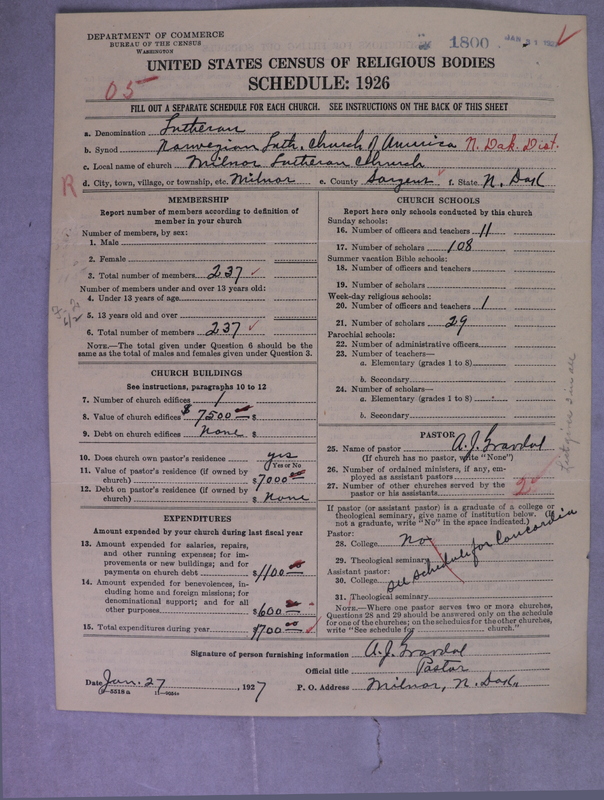 DEPARTMENT OF COMMERCE
BUREAU OF THE CENSUS
WASHINGTON
1800
UNITED STATES CENSUS OF RELIGIOUS BODIES
SCHEDULE: 1926
05
FILL OUT A SEPARATE SCHEDULE FOR EACH CHURCH. SEE INSTRUCTIONS ON THE BACK OF THIS SHEET
a. Denomination Lutheran
b. Synod Norwegian Luth. Church of America N. Dak. Dist.
c. Local name of church Milnor Lutheran Church
R d. City, town, village, or township, etc. Milnor e. County Sargent f. State N. Dak
MEMBERSHIP
Report number of members according to definition of member in your church
Number of members, by sex:
1. Male
2. Female
3. Total number of members 237
Number of members under and over 13 years old:
4. Under 13 years of age
5. 13 years old and over
6. Total number of members 237
NOTE.—The total given under Question 6 should be the same as the total of males and females given under Question 3.
CHURCH BUILDINGS
See instructions, paragraphs 10 to 12
7. Number of church edifices 1
8. Value of church edifices $ 7500.00 $
9. Debt on church edifices None $
10. Does church own pastor's residence? yes
Yes or No
11. Value of pastor's residence (if owned by church) $7000.00
12. Debt on pastor's residence (if owned by church) $ None
EXPENDITURES
Amount expended by your church during last fiscal year
13. Amount expended for salaries, repairs, and other running expenses; for improvements or new buildings; and for payments on church debt $1100.00
14. Amount expended for benevolences, including home and foreign missions; for denominational support; and for all other purposes $600.00
15. Total expenditures during year $1700.00
CHURCH SCHOOLS
Report here only schools conducted by this church
Sunday schools:
16. Number of officers and teachers 11
17. Number of scholars 108
Summer vacation Bible schools:
18. Number of officers and teachers
19. Number of scholars
Week-day religious schools:
20. Number of officers and teachers 1
21. Number of scholars 29
Parochial schools:
22. Number of administrative officers
23. Number of teachers—
a. Elementary (grades 1 to 8)
b. Secondary
24. Number of scholars—
a. Elementary (grades 1 to 8)
b. Secondary
PASTOR
25. Name of pastor
(If church has no pastor, write "None")
26. Number of ordained ministers, if any, employed as assistant pastors
27. Number of other churches served by the pastor or his assistants 2
If pastor (or assistant pastor) is a graduate of a college or theological seminary, give name of institution below. (If not a graduate, write "No" in the space indicated.)
Pastor:
28. College No
29. Theological seminary
See Schedule for Concordia
Assistant pastor:
30. College
31. Theological seminary
NOTE.—Where one pastor serves two or more churches, Questions 28 and 29 should be answered only on the schedule for one of the churches; on the schedules for the other churches, write "See schedule for church."
Signature of person furnishing information
Official title Pastor
Date Jan. 27, 1927 P. O. Address Milnor, N. Dak.